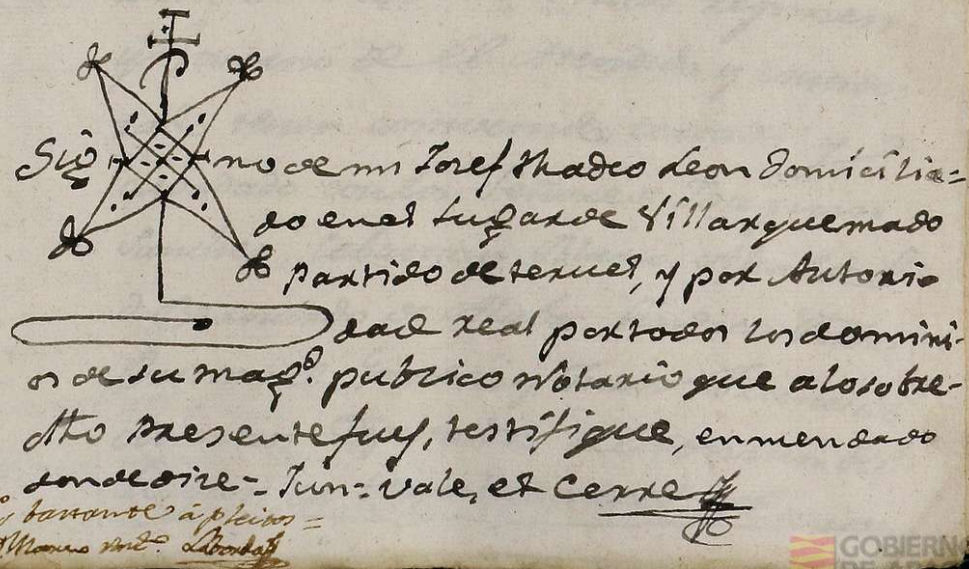 Sig no de mi Josef Thadeo Leon Domicilia=
do en el Lugar de Villarquemado
Partido de teruel, y por Autori=
dad real por todos los domini-
os de su magd. publico Notario que a lo sobre-
dho Presente fuy, testifique, enmendado
donde dize = Jun = Vale, et Cerre
bastante á pleitos =
GOBIERN